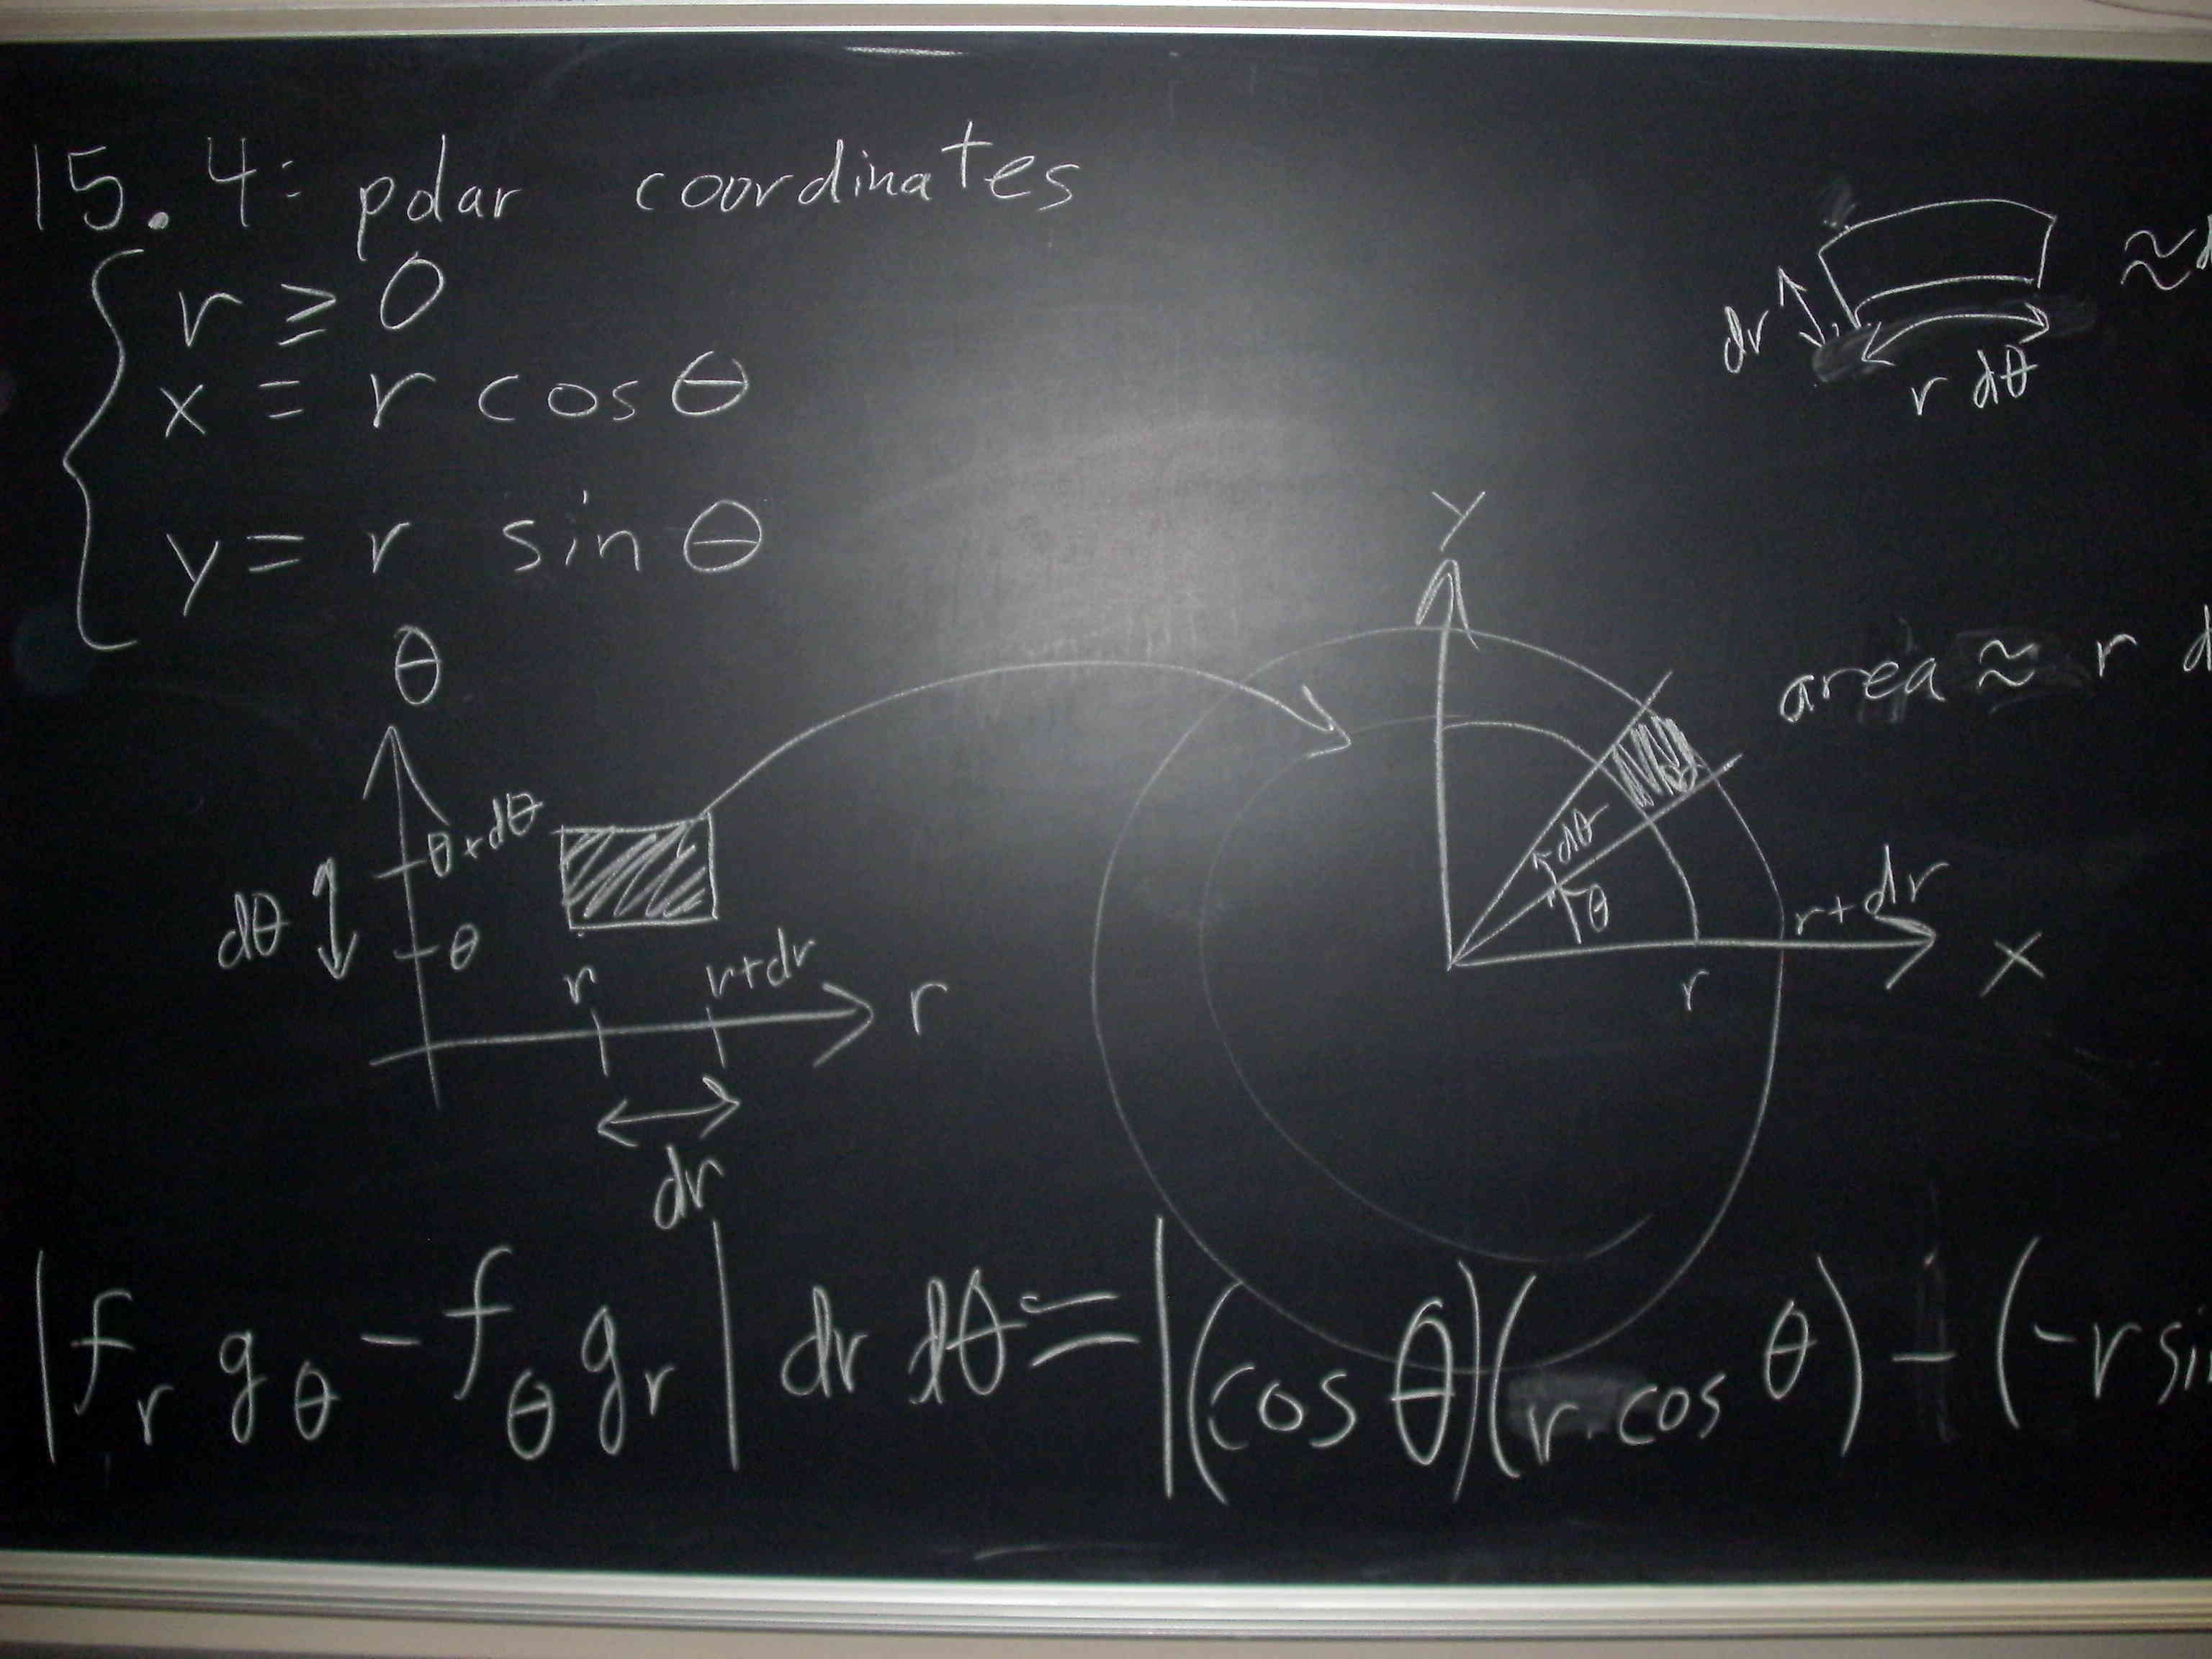 15.4: polar coordinates
r ≥ 0
x = r cosθ
y = r sinθ
dr
r dθ
≈
θ
θ+dθ
dθ
θ
r
r+dr
r
dr
Y
area ≈ r
dθ
θ
r+dr
r
X
|f_r g_θ - f_θ g_r| dr dθ = |(cos θ)(r cos θ) - (-r sin